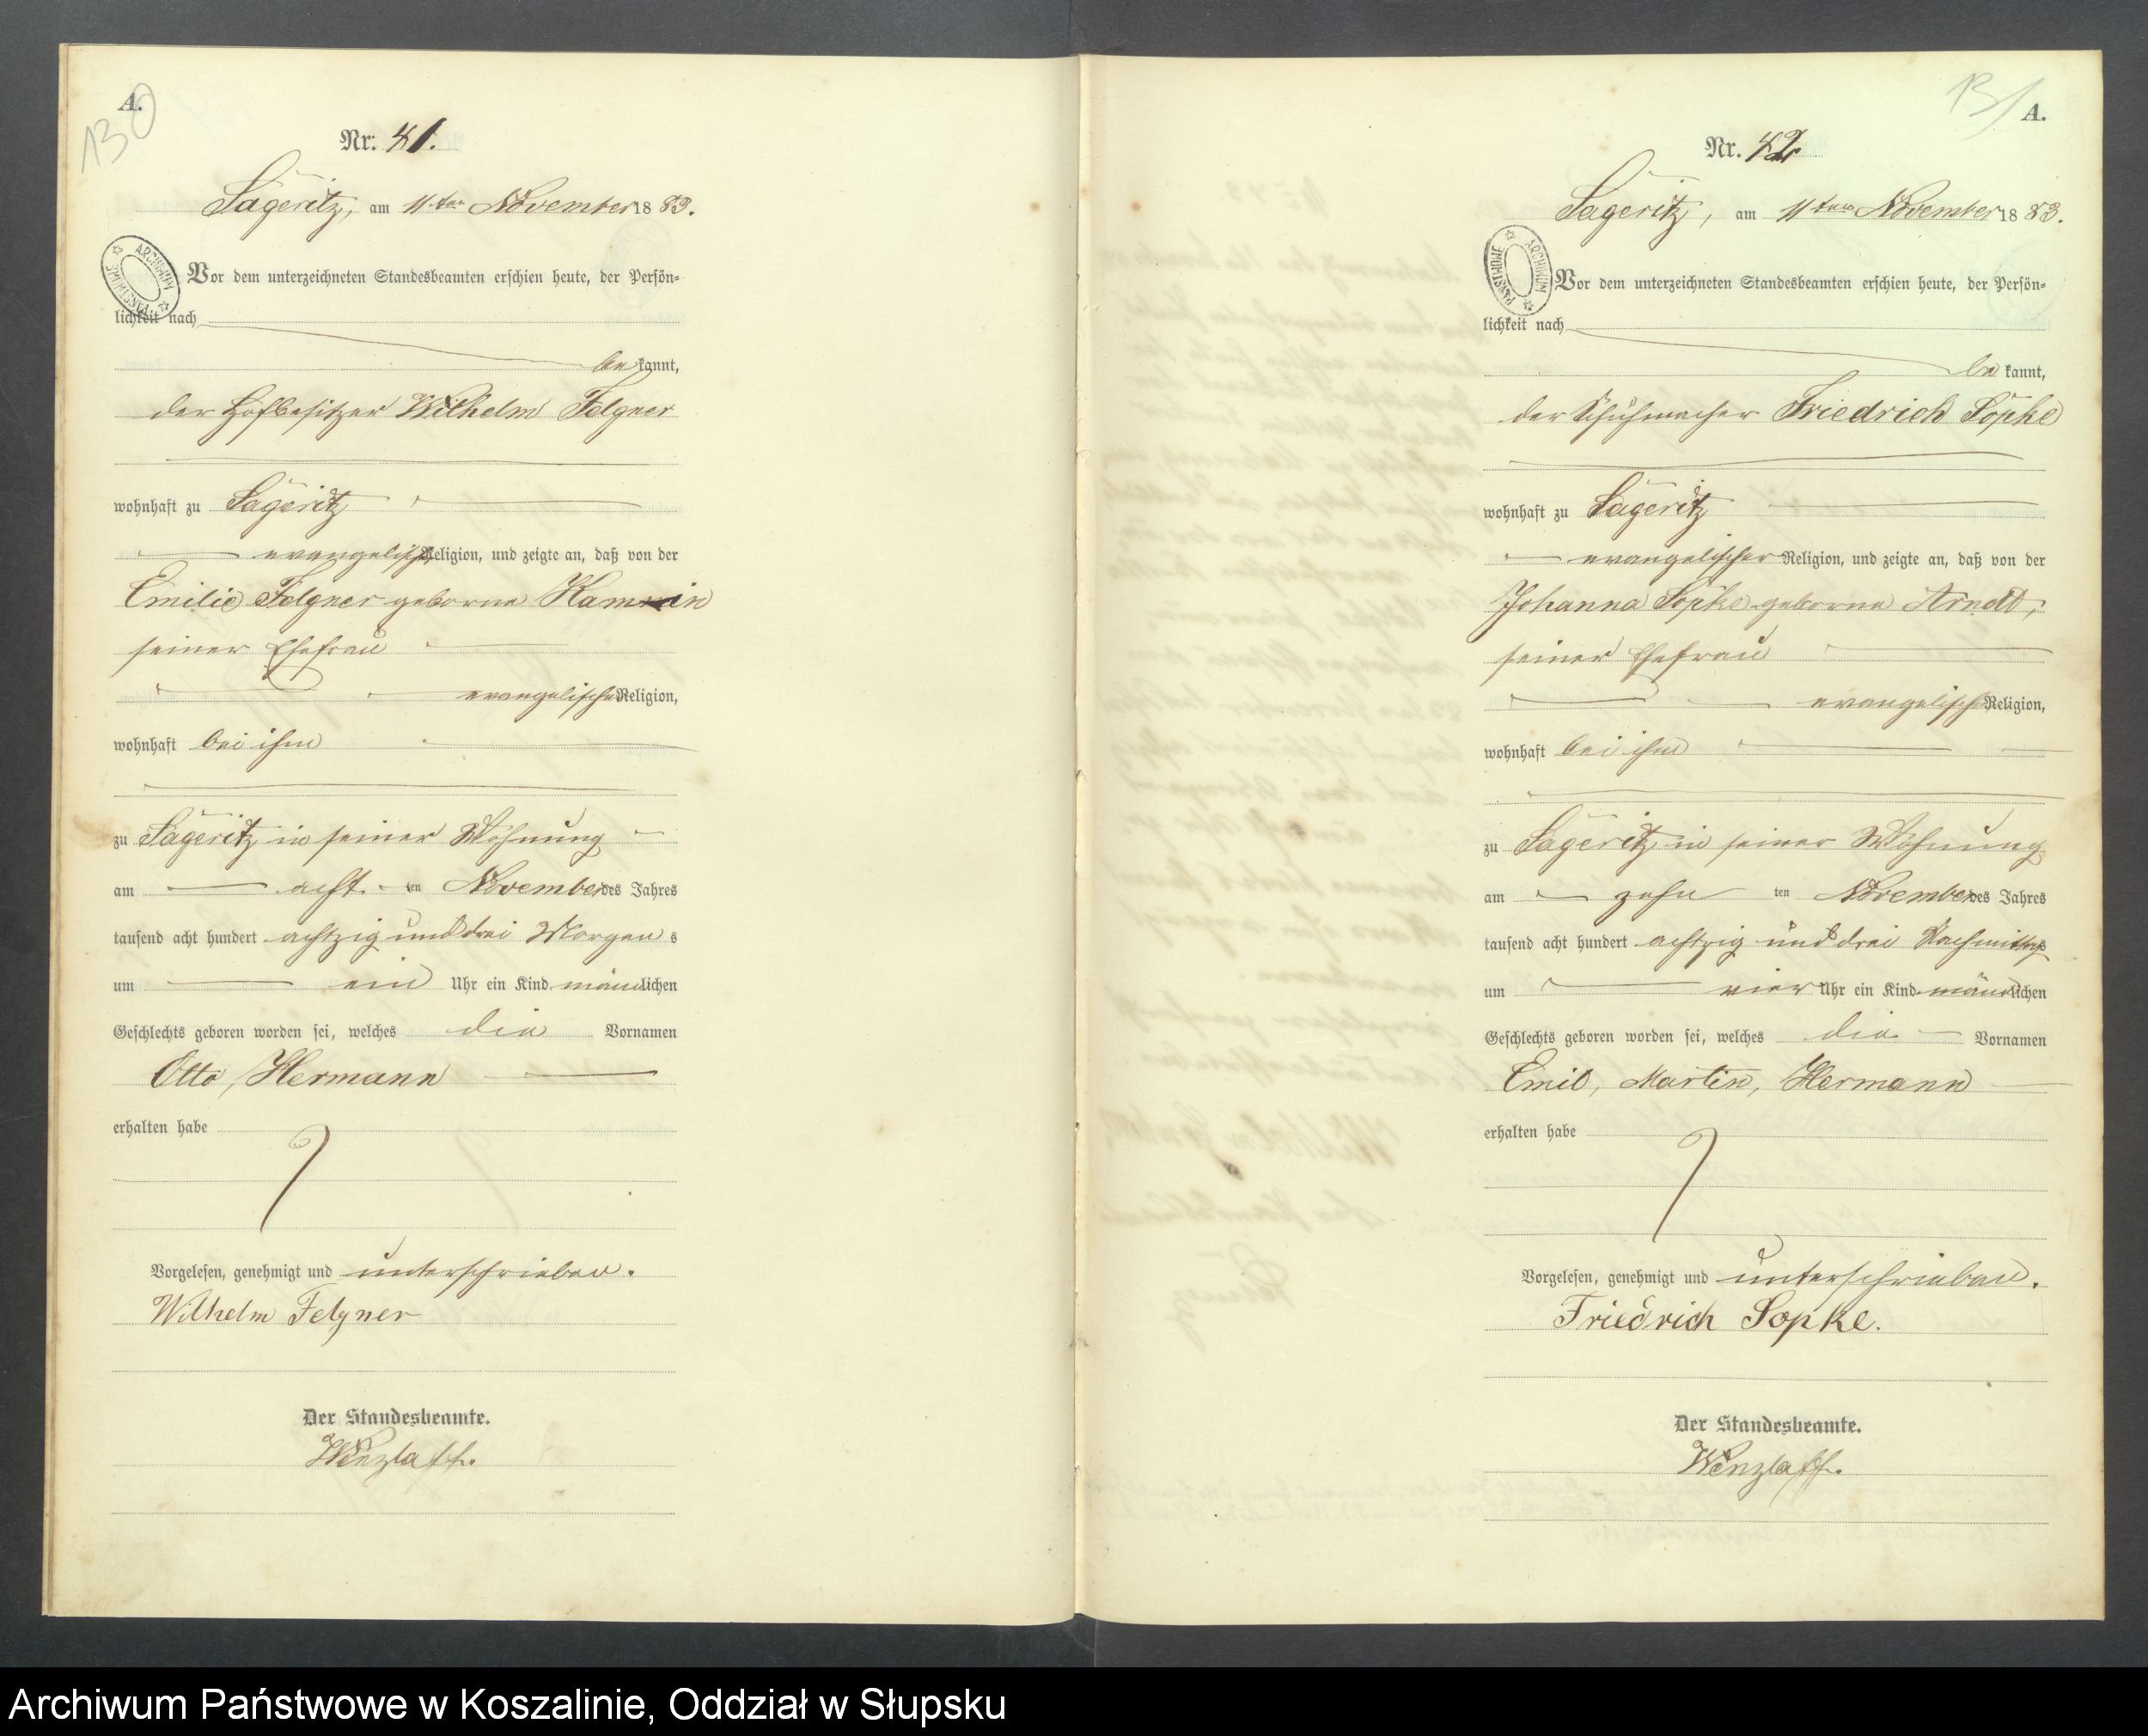 A.
130
Nr. 41.
Sageritz, am 11ten November 1883.
ARCHIWUM PAŃSTWOWE
Vor dem unterzeichneten Standesbeamten erschien heute, der Persön-
lichkeit nach
bekannt,
der Hofbesitzer Wilhelm Felgner
wohnhaft zu Sageritz
evangelischer Religion, und zeigte an, daß von der
Emilie Felgner geborne Kammin
seiner Ehefrau
evangelischer Religion,
wohnhaft bei ihm
zu Sageritz in seiner Wohnung
am acht ten November des Jahres
tausend acht hundert achtzig und drei Morgens
um ein Uhr ein Kind männlichen
Geschlechts geboren worden sei, welches die Vornamen
Otto, Hermann
erhalten habe
Vorgelesen, genehmigt und unterschrieben.
Wilhelm Felgner
Der Standesbeamte.
Wenzlaff.
131
A.
Nr. 42
Sageritz, am 11ten November 1883.
ARCHIWUM PAŃSTWOWE
Vor dem unterzeichneten Standesbeamten erschien heute, der Persön-
lichkeit nach
bekannt,
der Schuhmacher Friedrich Sopke
wohnhaft zu Sageritz
evangelischer Religion, und zeigte an, daß von der
Johanna Sopke geborne Arndt,
seiner Ehefrau
evangelischer Religion,
wohnhaft bei ihm
zu Sageritz in seiner Wohnung
am zehn ten November des Jahres
tausend acht hundert achtzig und drei Nachmittags
um vier Uhr ein Kind männlichen
Geschlechts geboren worden sei, welches die Vornamen
Emil, Martin, Hermann
erhalten habe
Vorgelesen, genehmigt und unterschrieben.
Friedrich Sopke.
Der Standesbeamte.
Wenzlaff.
Archiwum Państwowe w Koszalinie, Oddział w Słupsku